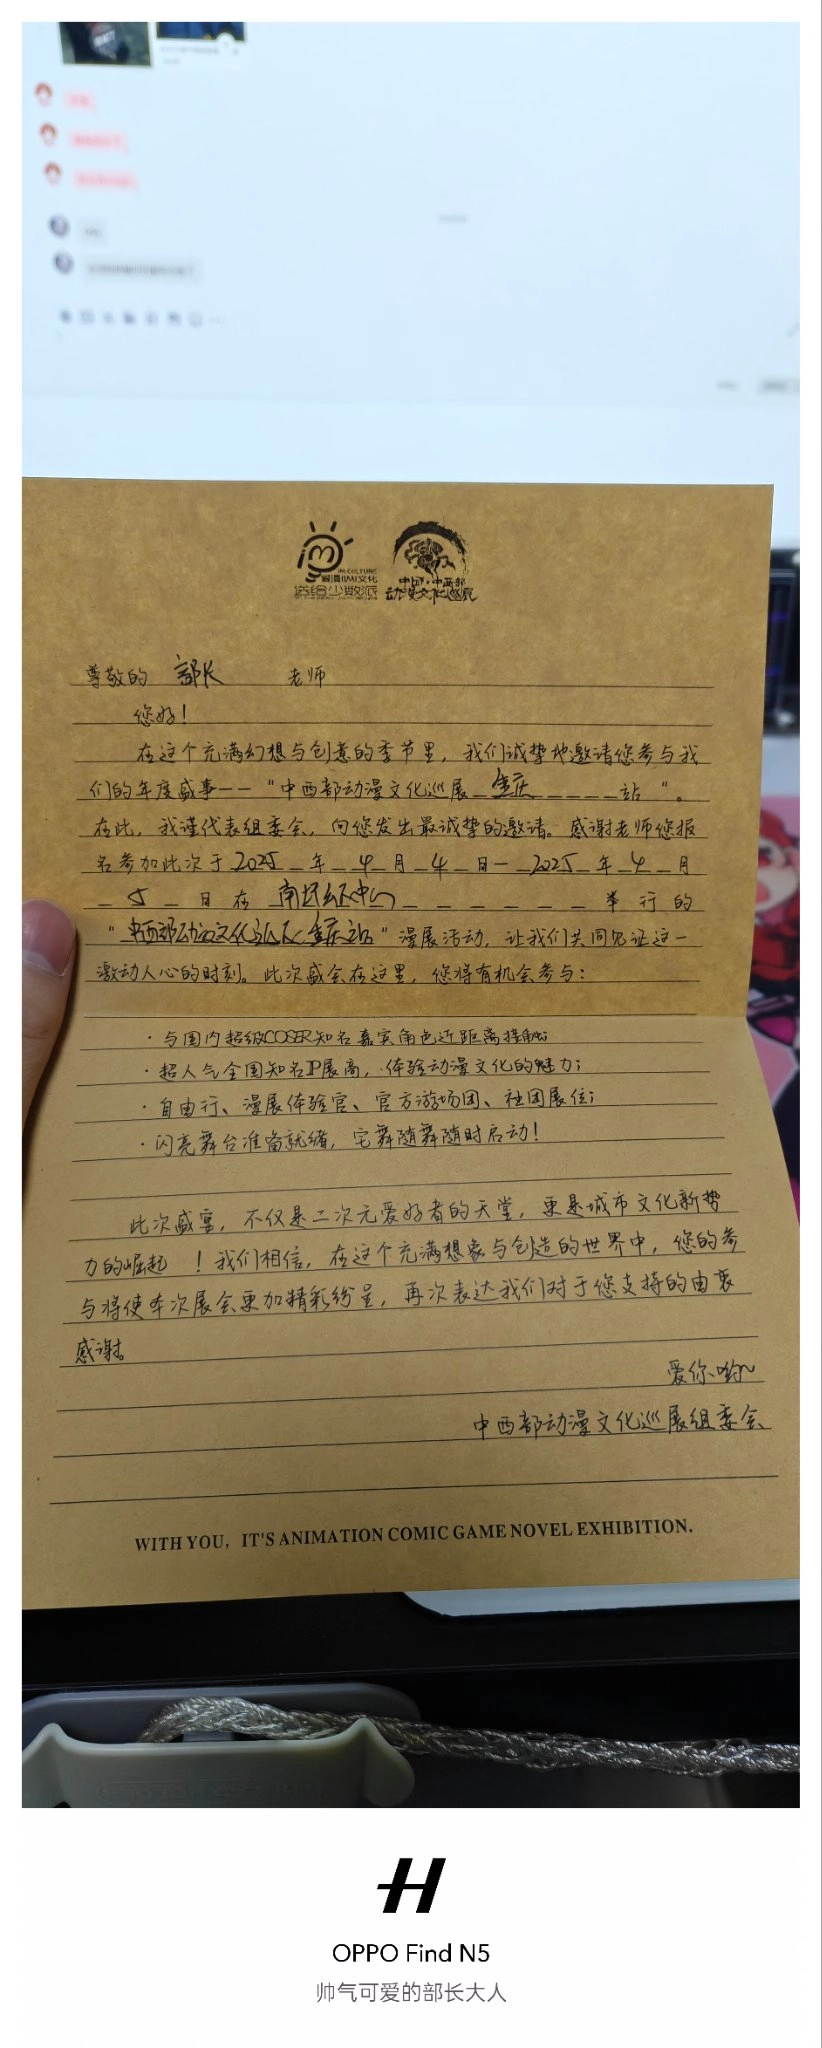 IM CULTURE
爱漫IMI文化
送给少数派
中国·中西部
动漫文化巡展
尊敬的 部长 老师
您好！
在这个充满幻想与创意的季节里，我们诚挚地邀请您参与我
们的年度盛事——“中西部动漫文化巡展 重庆 站 ”。
在此，我谨代表组委会，向您发出最诚挚的邀请。感谢老师您报
名参加此次于 2025 年 4 月 4 日— 2025 年 4 月
5 日 在 南坪 中心 举 行 的
“中西部动漫文化巡展重庆站”漫展活动，让我们共同见证这一
激动人心的时刻。此次盛会在这里，您将有机会参与：
·与国内超级COSER知名嘉宾角色近距离接触；
·超人气全国知名IP展商，体验动漫文化的魅力；
·自由行、漫展体验官、官方游场团、社团展位；
·闪亮舞台准备就绪，宅舞随舞随时启动！
此次盛宴，不仅是二次元爱好者的天堂，更是城市文化新势
力的崛起 ！我们相信，在这个充满想象与创造的世界中，您的参
与将使本次展会更加精彩纷呈，再次表达我们对于您支持的由衷
感谢。
爱你哟~
中西部动漫文化巡展组委会
WITH YOU，IT'S ANIMATION COMIC GAME NOVEL EXHIBITION.
H
OPPO Find N5
帅气可爱的部长大人